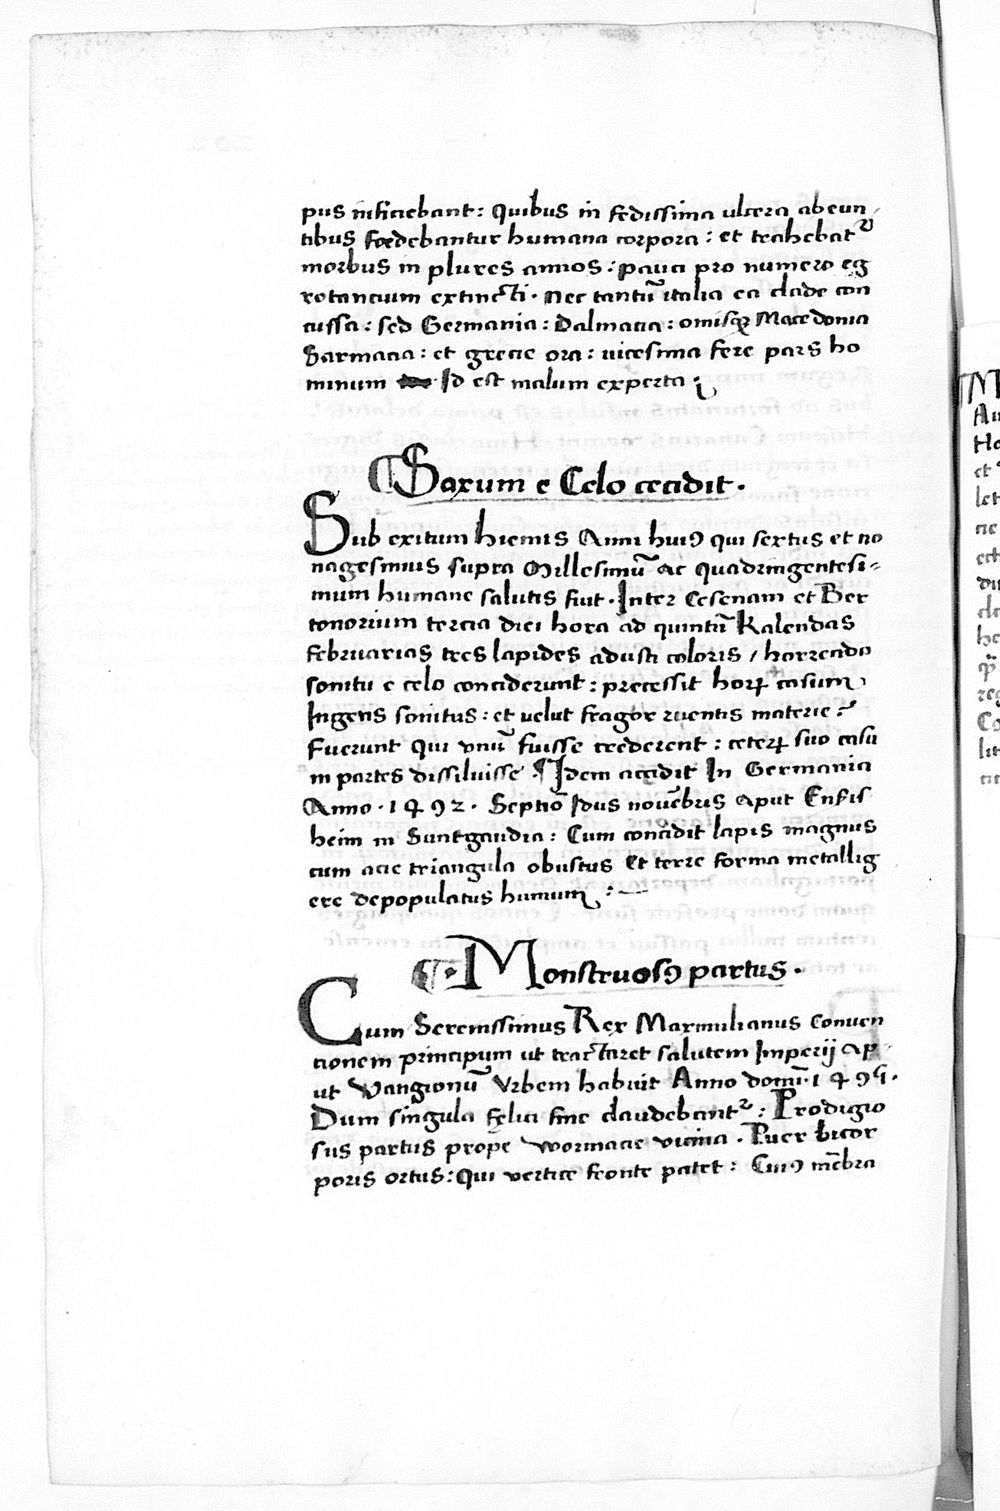 pus inficiebant: quibus in fedissima ulcera abeun
tibus foedebantur humana corpora: et trahebat᷑
morbus in plures annos: pauci pro numero eg
rotancium extincti. nec tantũ italia ea clade con
cussa: sed Germania: Dalmacia: omisqꝫ Macedonia
Sarmacia: et grecie ora: vicesima fere pars ho
minum Id est malum experta
¶ Saxum e Celo cecidit.
Sub exitum hiemis Anni huiꝰ qui sextus et no
nagesimus supra Millesimũ ac quadringentesi-
mum humane salutis fuit. Inter Cesenam et Ber
tonorium tercia diei hora ad quintũ Kalendas
februarias tres lapides adusti coloris / horrendo
sonitu e celo conciderunt: precessit horꝝ casum
Ingens sonitus: et velut fragor ruentis materie:
Fuerunt qui vnũ fuisse crederent: ceterꝝ suo casu
in partes dissiluisse ¶ Idem accidit In Germania
Anno. 1492. Septiõ Idus nouẽbris aput Ensis
heim in Suntgaudia: Cum concidit lapis magnus
cum acie triangula obustus Et terre forma metallig
ere depopulatus humum:
¶. Monstruosꝰ partus.
Cum Serenissimus Rex Maxmilianus Conuen
cionem principum ut tractaret salutem Imperij ap
ut Vangionũ Vrbem habuit Anno domi. 1495.
Dum singula felici fine claudebant᷑: Prodigio
sus partus prope wormacie vicina. Puer bicor
poris ortus: Qui vertice fronte patet: Cuiꝰ mẽbra
M
Au
Ho
et
let
ne
he
reg
Co
lit